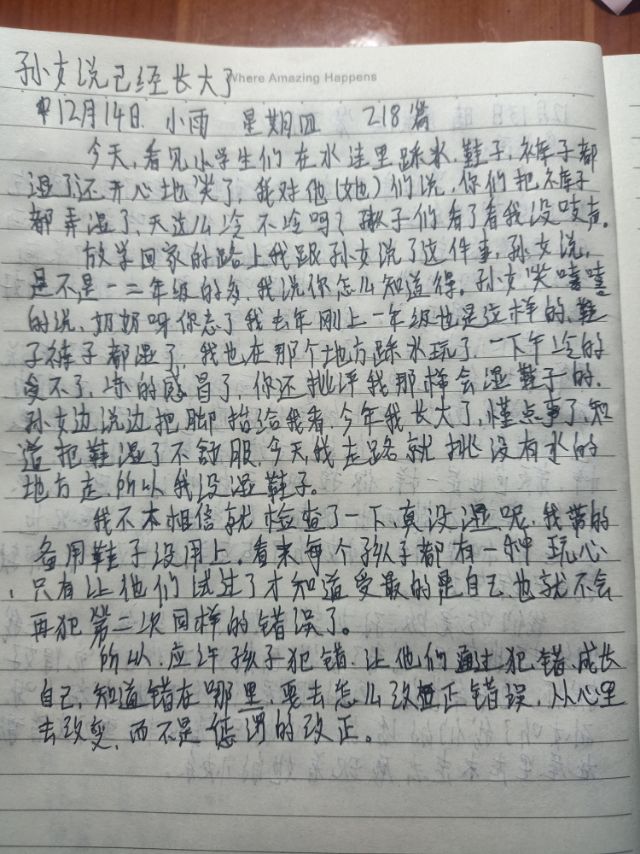 Where Amazing Happens
孙女说已经长大了
12月14日 小雨 星期四 218篇
今天,看见小学生们在水洼里踩水,鞋子,裤子都
湿了还开心地笑了,我对他(她)们说,你们把裤子
都弄湿了,天这么冷不冷吗?孩子们看了看我没吱声。
放学回家的路上我跟孙女说了这件事,孙女说,
是不是一二年级的多,我说你怎么知道得,孙女笑嘻嘻
的说,奶奶呀你忘了我去年刚上一年级也是这样的,鞋
子裤子都湿了,我也在那个地方踩水玩了,一下午冷的
受不了,冻的感冒了,你还批评我那样会湿鞋子的,
孙女边说边把脚抬给我看,今年我长大了,懂点事了,知
道把鞋湿了不舒服,今天我走路就挑没有水的
地方走,所以我没湿鞋子。
我不太相信就检查了一下,真没湿呢,我带的
备用鞋子没用上,看来每个孩子都有一种玩心
,只有让他们试过了才知道受最的是自己,也就不会
再犯第二次同样的错误了。
所以,应许孩子犯错,让他们通过犯错,成长
自己,知道错在哪里,要去怎么改正错误,从心里
去改变,而不是 的改正。